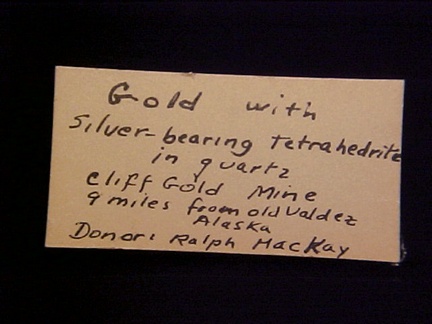 Gold with
Silver-bearing Tetrahedrite
in quartz
Cliff Gold Mine
9 miles from old Valdez
Alaska
Donor: Ralph MacKay